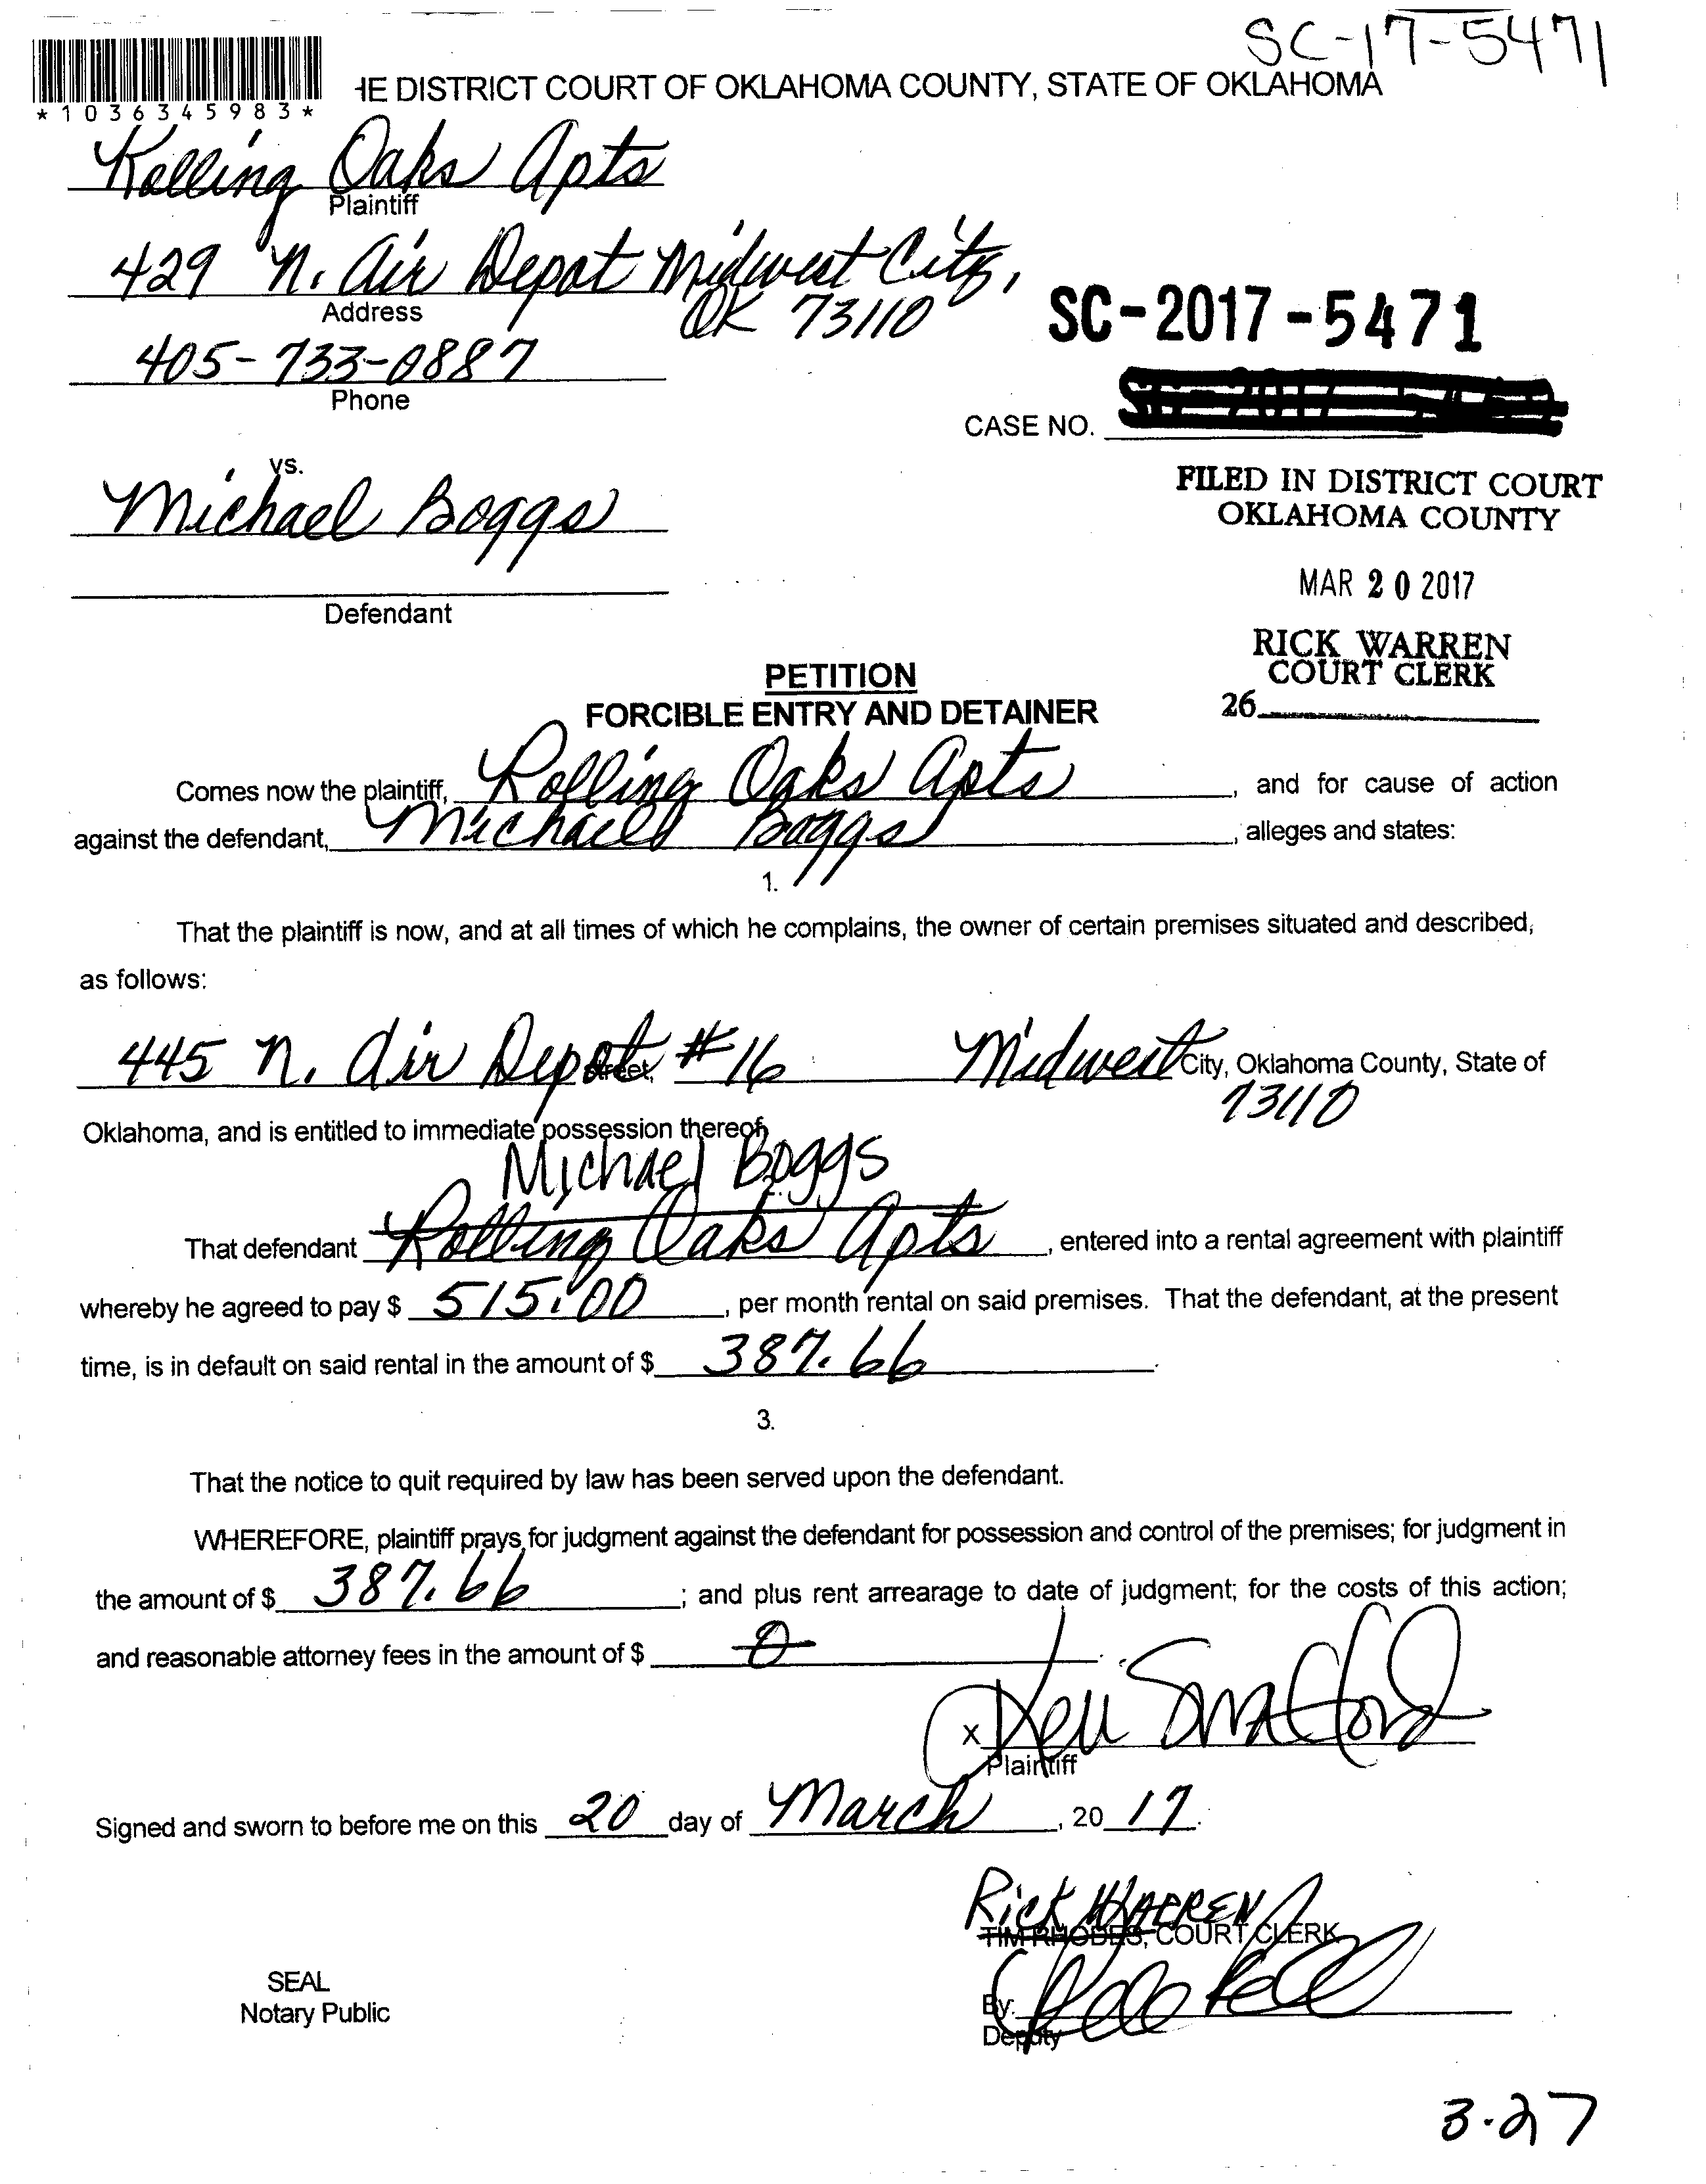 SC-17-5471
*1036345983*
HE DISTRICT COURT OF OKLAHOMA COUNTY, STATE OF OKLAHOMA
Rolling Oaks Apts
Plaintiff
429 N. Air Depot Midwest City,
OK 73110
Address
SC-2017-5471
405-733-0887
Phone
CASE NO.
vs.
Michael Boggs
FILED IN DISTRICT COURT
OKLAHOMA COUNTY
MAR 20 2017
Defendant
RICK WARREN
COURT CLERK
26
PETITION
FORCIBLE ENTRY AND DETAINER
Comes now the plaintiff, Rolling Oaks Apts, and for cause of action
against the defendant, Michael Boggs, alleges and states:
1.
That the plaintiff is now, and at all times of which he complains, the owner of certain premises situated and described,
as follows:
445 N. Air Depot Street, #16 Midwest City, Oklahoma County, State of
73110
Oklahoma, and is entitled to immediate possession thereof.
Michael Boggs
That defendant Rolling Oaks Apts, entered into a rental agreement with plaintiff
whereby he agreed to pay $ 515.00, per month rental on said premises. That the defendant, at the present
time, is in default on said rental in the amount of $ 387.66.
3.
That the notice to quit required by law has been served upon the defendant.
WHEREFORE, plaintiff prays for judgment against the defendant for possession and control of the premises; for judgment in
the amount of $ 387.66; and plus rent arrearage to date of judgment; for the costs of this action;
and reasonable attorney fees in the amount of $ 0.
X
Plaintiff
Signed and sworn to before me on this 20 day of March, 20 17.
Rick WARREN
TIM RHODES, COURT CLERK
SEAL
Notary Public
By:
Deputy
3-27